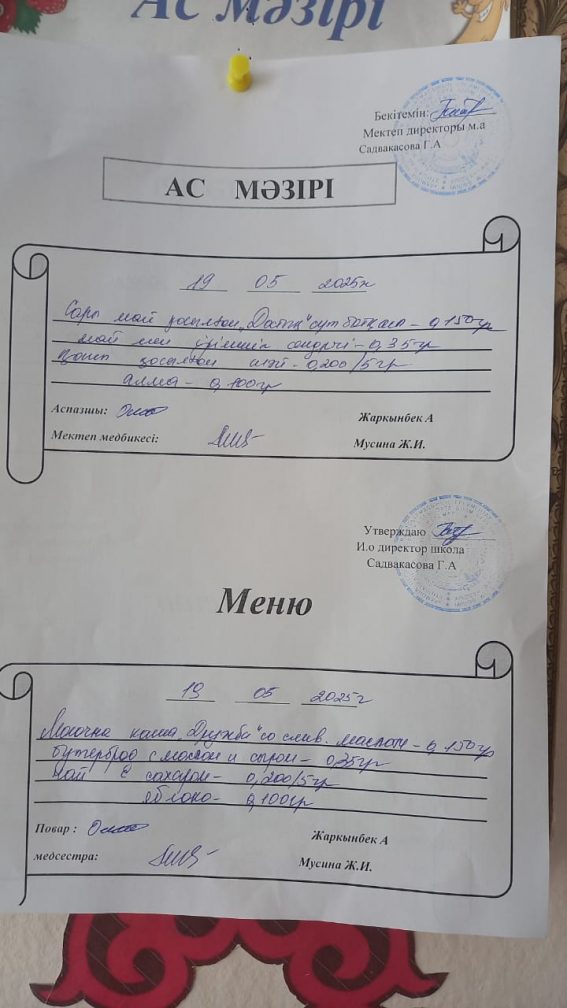 Ас мәзірі
Бекітемін:
Мектеп директоры м.а
Садвакасова Г.А
АС МӘЗІРІ
19 05 2025ж
Сары май қосылған „Достық" сүт ботқасы - 0,150гр
май мен ірімшік сэндвичі - 0,35гр
қосылған шай - 0,200/5гр
алма - 0,100гр
Аспазшы:
Жаркынбек А
Мектеп медбикесі:
Мусина Ж.И.
Утверждаю
И.о директор школа
Садвакасова Г.А
Меню
19 05 2025г
Молочна каша „Дружба" со слив. маслом - 0,150гр
бутерброд с маслом и сыром - 0,35гр
чай с сахаром - 0,200/5гр
яблоко - 0,100гр
Повар :
Жаркынбек А
медсестра:
Мусина Ж.И.